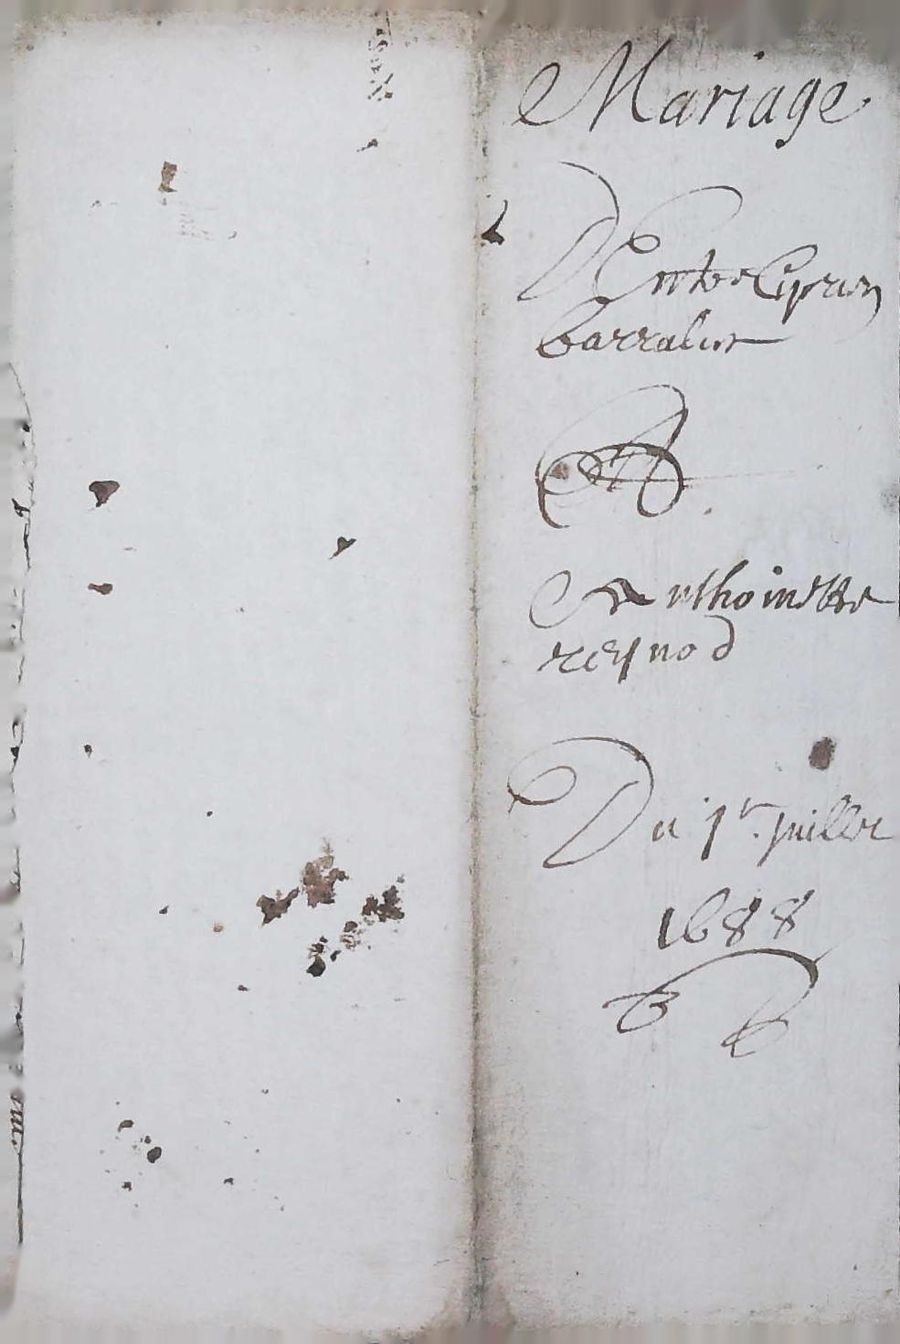 Mariage
D'Entre Ciprien
barralier
Et
Anthoinette
reynod
Du 1r. juillet
1688